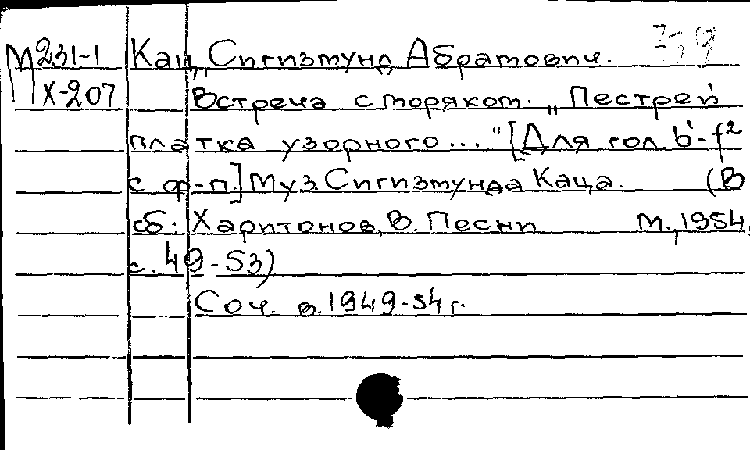 М231-1 Кац, Сигизмунд Абрамович.
Х-207 Встреча с моряком. „Пестрей
платка узорного..." [Для гол. b'-f²
с ф-п.] Муз. Сигизмунда Каца. (В
сб: Харитонов, В. Песни М., 1954,
с. 49-53)
Соч. в 1949-54 г.